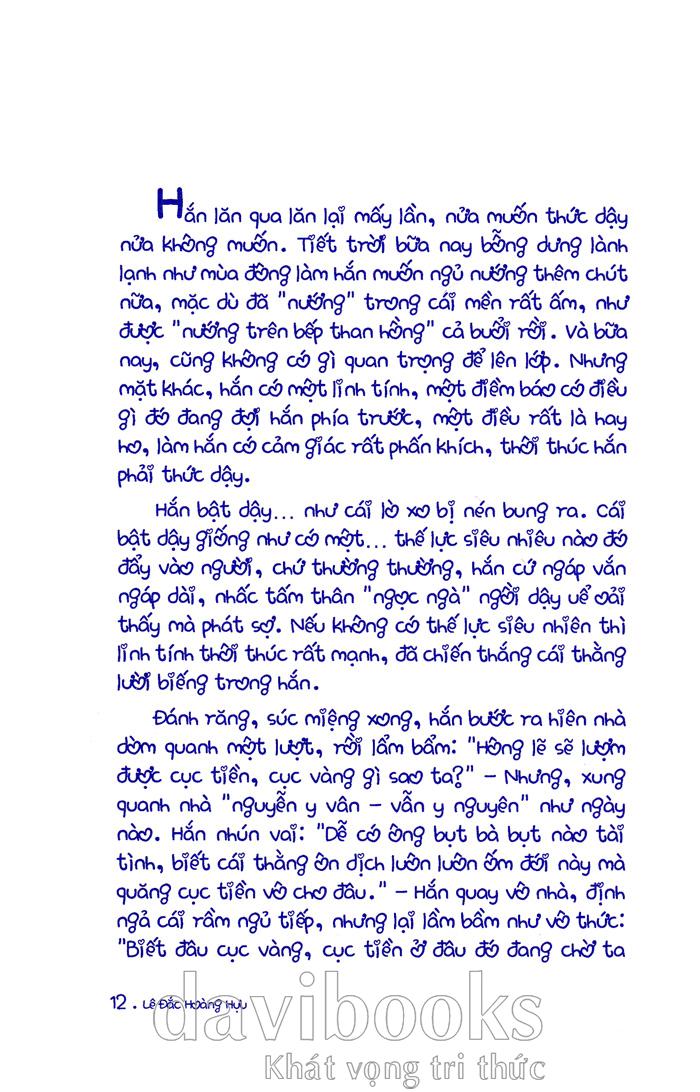 Hắn lăn qua lăn lại mấy lần, nửa muốn thức dậy
nửa không muốn. Tiết trời bữa nay bỗng dưng lành
lạnh như mùa đông làm hắn muốn ngủ nướng thêm chút
nữa, mặc dù đã "nướng" trong cái mền rất ấm, như
được "nướng trên bếp than hồng" cả buổi rồi. Và bữa
nay, cũng không có gì quan trọng để lên lớp. Nhưng
mặt khác, hắn có một linh tính, một điềm báo có điều
gì đó đang đợi hắn phía trước, một điều rất là hay
ho, làm hắn có cảm giác rất phấn khích, thôi thúc hắn
phải thức dậy.
Hắn bật dậy... như cái lò xo bị nén bung ra. Cái
bật dậy giống như có một... thế lực siêu nhiêu nào đó
đẩy vào người, chứ thường thường, hắn cứ ngáp vắn
ngáp dài, nhấc tấm thân "ngọc ngà" ngồi dậy uể oải
thấy mà phát sợ. Nếu không có thế lực siêu nhiên thì
linh tính thôi thúc rất mạnh, đã chiến thắng cái thằng
lười biếng trong hắn.
Đánh răng, súc miệng xong, hắn bước ra hiên nhà
dòm quanh một lượt, rồi lẩm bẩm: "Hông lẽ sẽ lượm
được cục tiền, cục vàng gì sao ta?" – Nhưng, xung
quanh nhà "nguyễn y vân – vẫn y nguyên" như ngày
nào. Hắn nhún vai: "Dễ có ông bụt bà bụt nào tài
tình, biết cái thằng ôn dịch luôn luôn ốm đói này mà
quăng cục tiền vô cho đâu." – Hắn quay vô nhà, định
ngả cái rầm ngủ tiếp, nhưng lại lầm bầm như vô thức:
"Biết đâu cục vàng, cục tiền ở đâu đó đang chờ ta
12 . Lê Đắc Hoàng Hựu
davibooks
Khát vọng tri thức